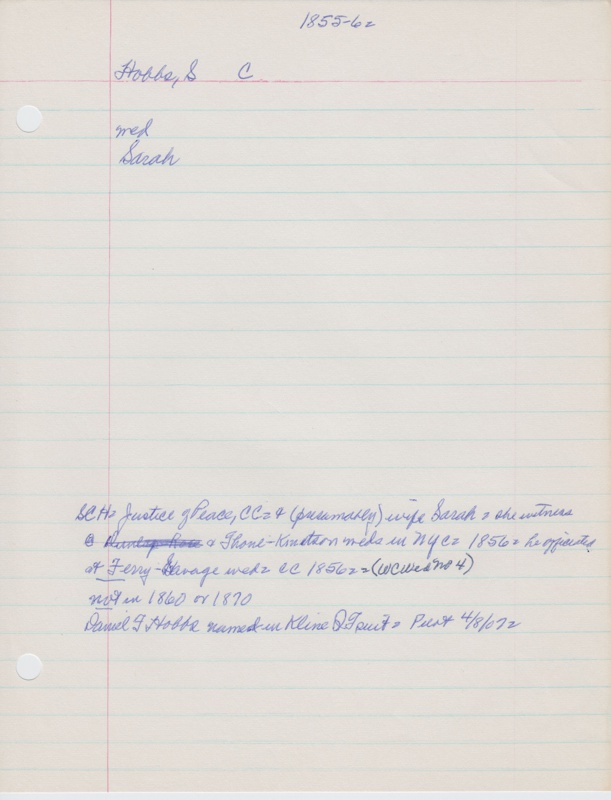 1855-6=
Hobbs, S C.
med
Sarah
SCH= Justice of Peace, CC= & (presumably) wife Sarah= she witness
@ & Thone-Knutson meds in NYC= 1856= he officiated
at Ferry-Savage wed= CC 1856== (WCWed No 4)
not in 1860 or 1870
Daniel F Hobbs named in Kline Q Truit= Pilot 4/8/07=